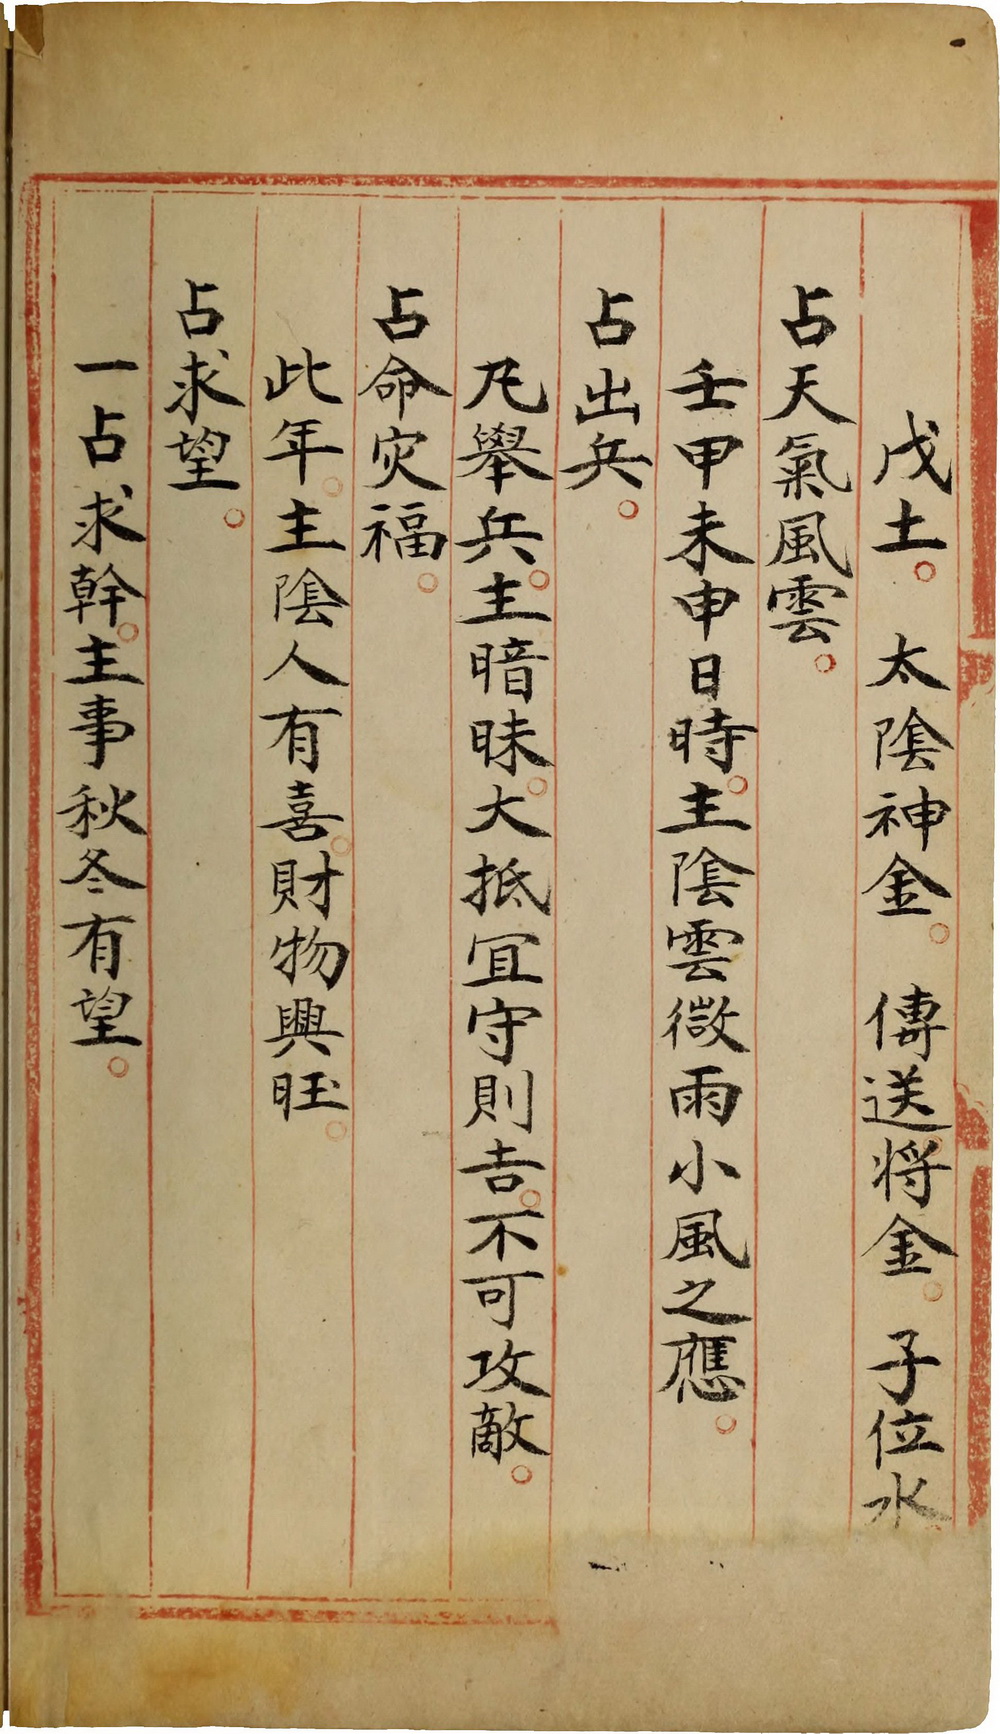 戊土。太陰神金。傳送將金。子位水
占天氣風雲。
壬甲未申日時。主陰雲微雨小風之應。
占出兵。
凢舉兵。主暗昧。大抵宜守則吉。不可攻敵。
占命灾福。
此年。主陰人有喜。財物興旺。
占求望。
一占求幹。主事秋冬有望。